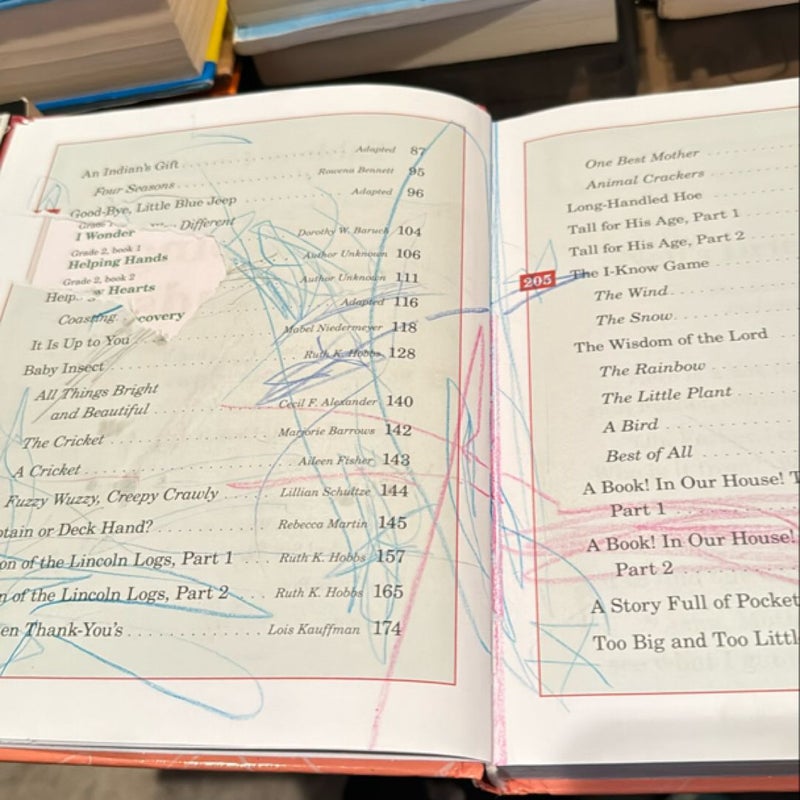 An Indian's Gift . . . . . . . . . . . . . . . . Adapted 87
Four Seasons . . . . . . . . . . . . . . Rowena Bennett 95
Good-Bye, Little Blue Jeep . . . . . . . . . . Adapted 96
Different
I Wonder Dorothy W. Baruch 104
Grade 2, book 1
Helping Hands Author Unknown 106
Grade 2, book 2
Hearts Author Unknown 111
Coasting covery Adapted 116
It Is Up to You . . . . . . . . . . Mabel Niedermeyer 118
Baby Insect . . . . . . . . . . Ruth K. Hobbs 128
All Things Bright
and Beautiful . . . . . . . . . . Cecil F. Alexander 140
The Cricket . . . . . . . . . . Marjorie Barrows 142
A Cricket . . . . . . . . . . Aileen Fisher 143
Fuzzy Wuzzy, Creepy Crawly . . . . . Lillian Schultze 144
tain or Deck Hand? . . . . . . . . . . Rebecca Martin 145
on of the Lincoln Logs, Part 1 . . . . Ruth K. Hobbs 157
n of the Lincoln Logs, Part 2 . . . . Ruth K. Hobbs 165
en Thank-You's . . . . . . . . . . . . Lois Kauffman 174
One Best Mother . . . . . . . .
Animal Crackers . . . . . . . .
Long-Handled Hoe . . . . . . . .
Tall for His Age, Part 1 . . . . .
Tall for His Age, Part 2 . . . . .
205 The I-Know Game . . . . . . . .
The Wind . . . . . . . . . .
The Snow . . . . . . . . . .
The Wisdom of the Lord . . .
The Rainbow . . . . . . . .
The Little Plant . . . . . .
A Bird . . . . . . . . . .
Best of All . . . . . . . .
A Book! In Our House! T
Part 1 . . . . . . . . . .
A Book! In Our House!
Part 2 . . . . . . . . . .
A Story Full of Pocket
Too Big and Too Littl